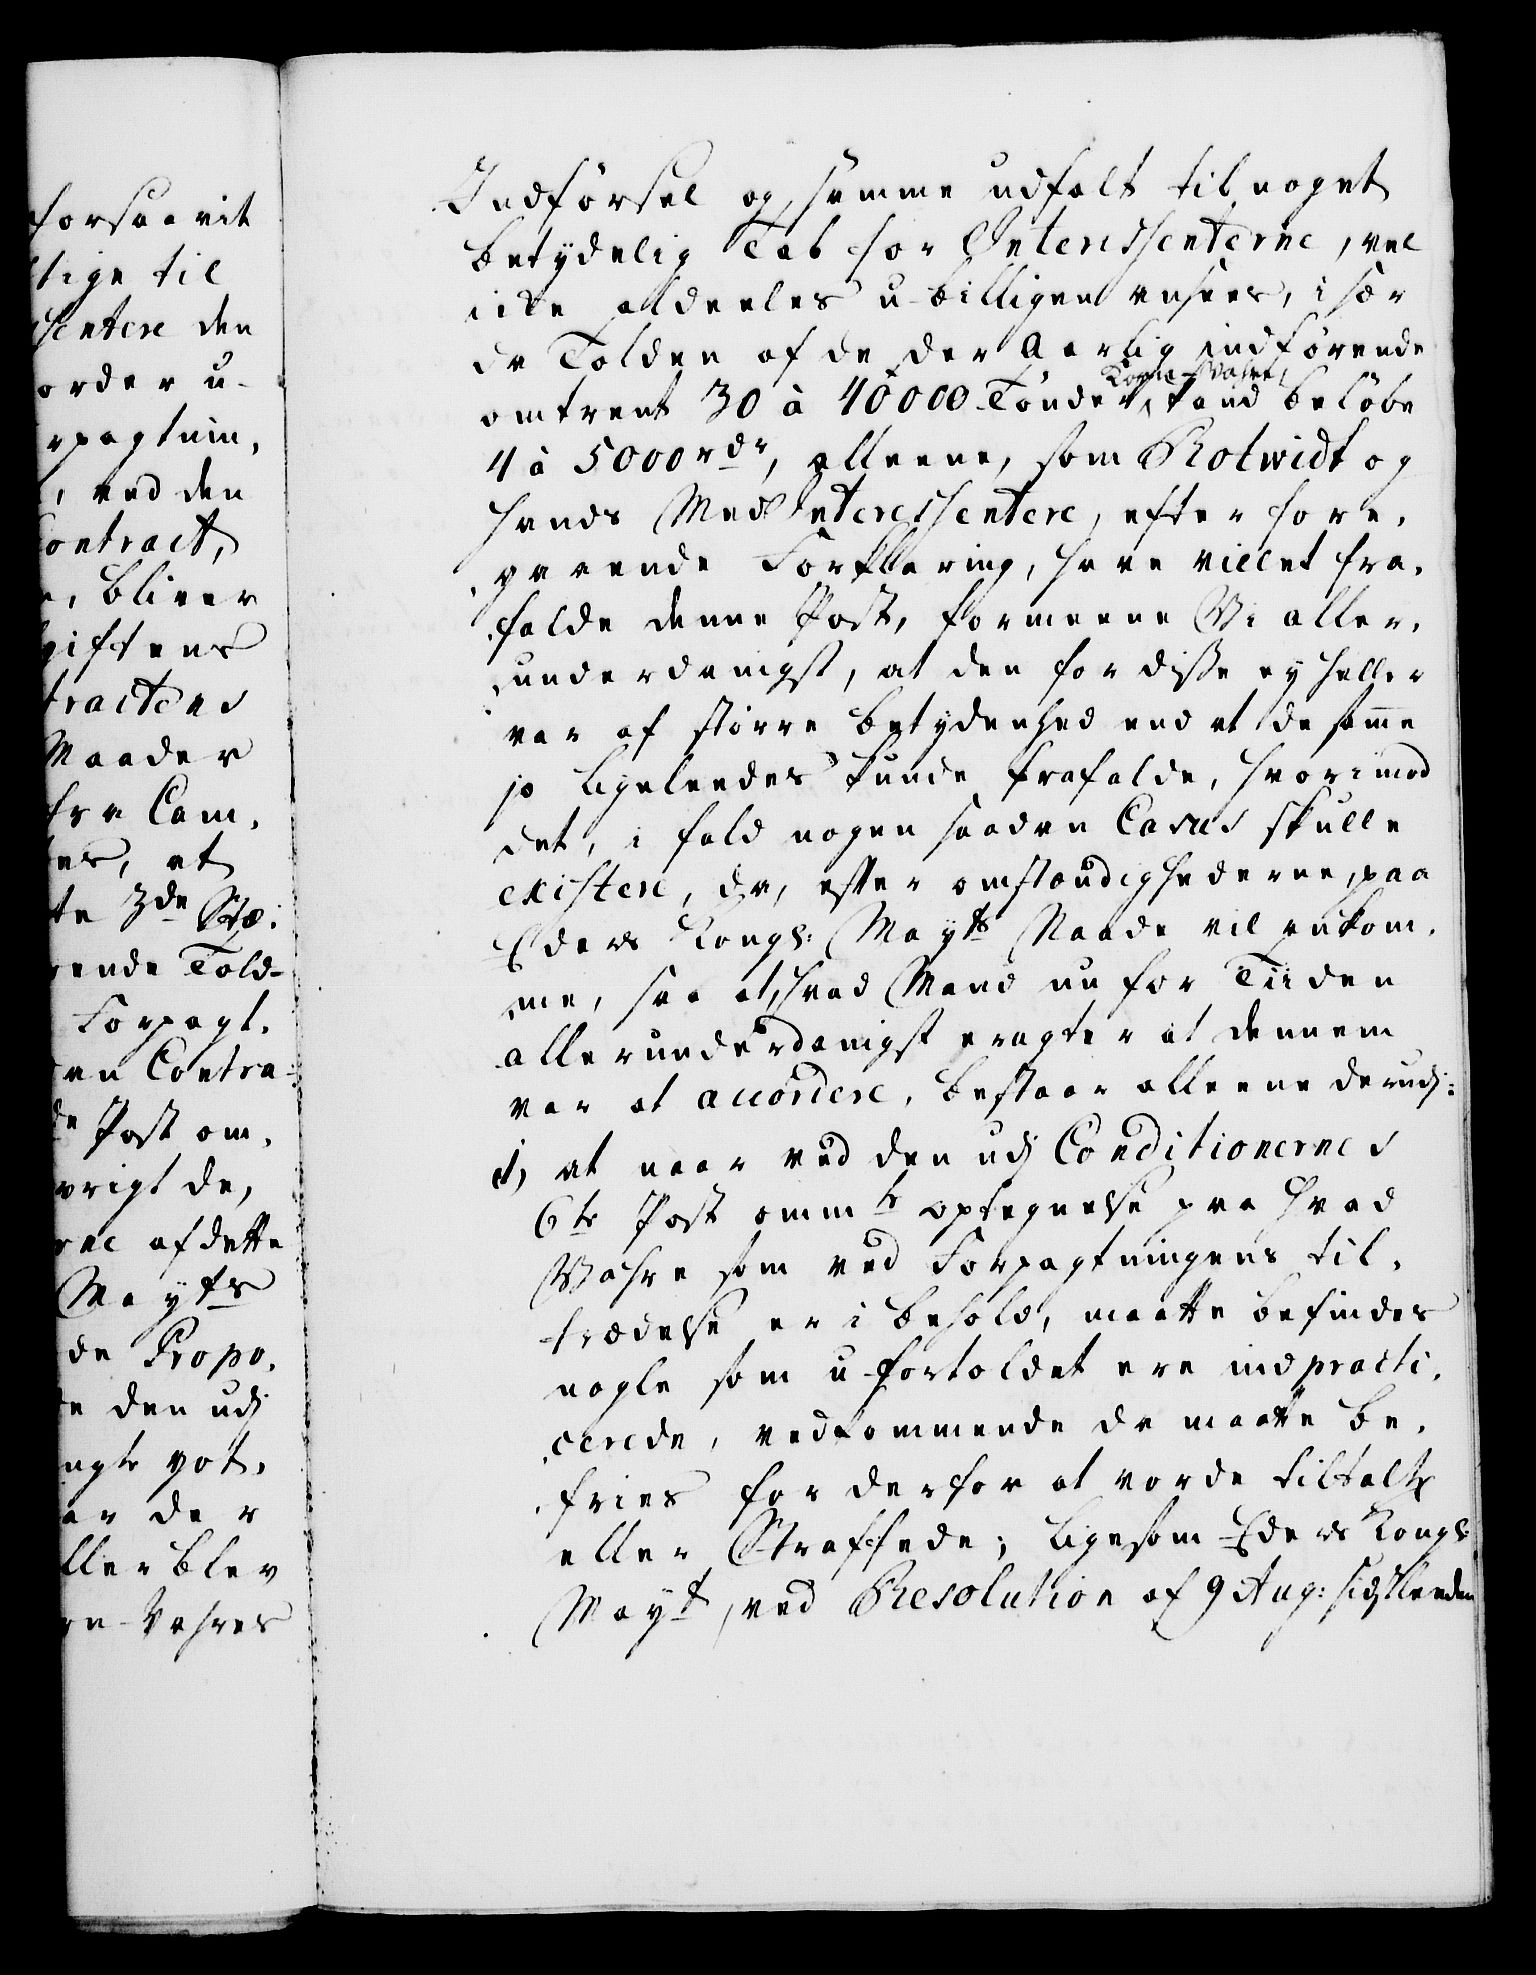 forsaavit
tige til
sentere den
order u-
rpagtnin,
, ved den
Contract,
e, bliver
giftens
tractens
Maader
fra Cam,
es, at
te 3de
ende Told-
Forpagt,
en Contra-
de Post om,
vrigt de,
rne af dette
Mayts
de Propo,
e den udj
ngte
ar der
ller blev
Vahres
Indförsel og samme udfalt til noget
betydelig Tab for Interessenterne, vel
icke aldeeles u-billigen ansees, i sær
da Tolden af de der Aarlig indförende
omtrent 30 à 40000 Tönder Korn-Vahre, kand belöbe
4 à 5000 rdr, alleene, som Rotwidt og
hands Med Interessentere, efter fore,
gaaende Forklaring, have villet fra,
falde denne Post, formeene Vi aller,
underdanigst, at den for disse ey heller
var af större betydenhed end at de samme
jo ligeleedes kunde frafalde, hvorimod
det, i fald nogen saadan Casus skulle
existere, da, efter omstændighederne, paa
Eders Kongl: Mayts Naade vil ankom,
me, saa at, hvad Mand nu for Tiiden
allerunderdanigst eragter at dennem
var at accordere, bestaar alleene derudj:
1, at naar ved den udj Conditionernes
6te Post ommte optegnelse paa hvad
Vahre som ved Forpagtningens til,
trædelse er i behold, maatte befindes
nogle som u-fortoldet ere indpracti,
cerede, vedkommende da maatte be,
fries for derfor at vorde tiltalte
eller Straffede; ligesom Eders Kongl:
Mayt, ved Resolution af 9 Aug: sidstleeden